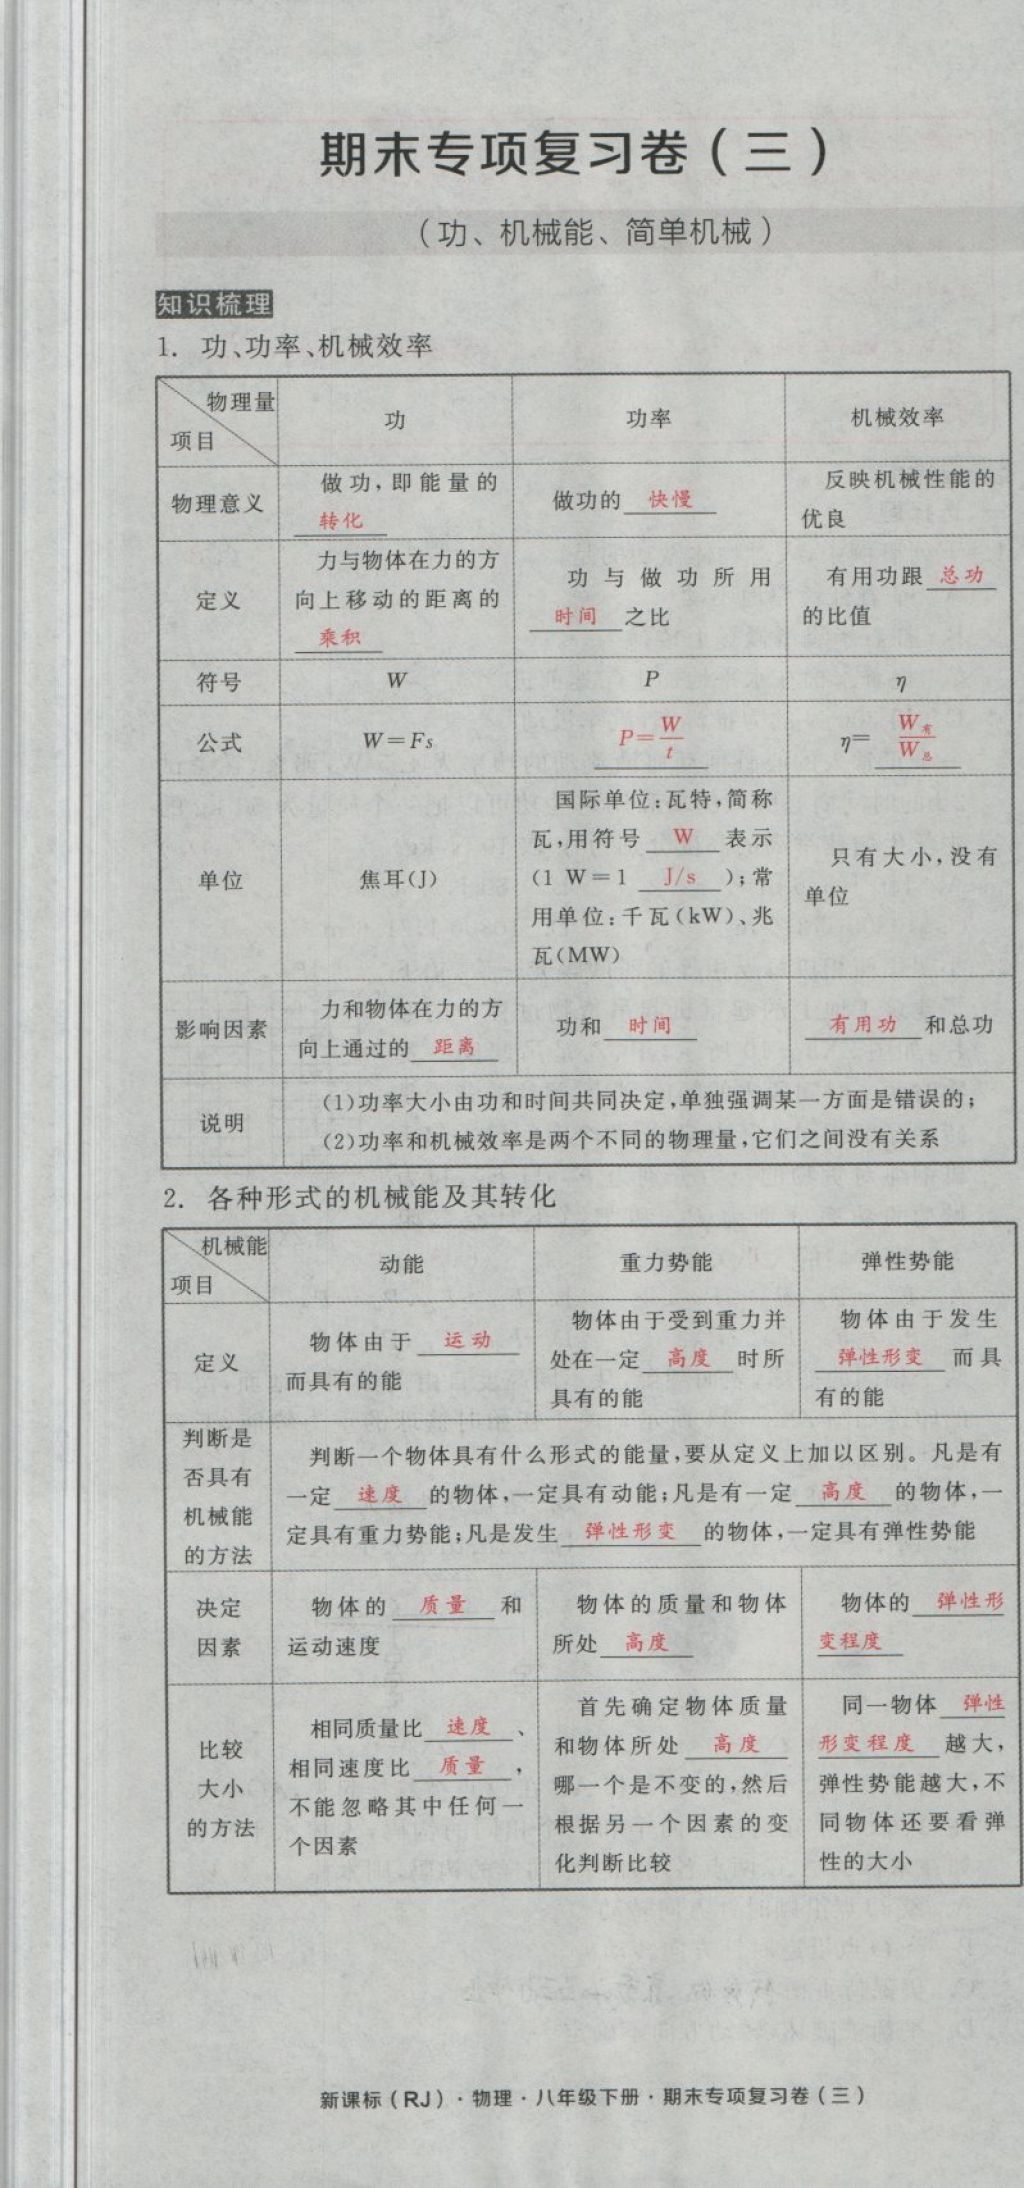 期末专项复习卷（三）
（功、机械能、简单机械）
知识梳理
1. 功、功率、机械效率
物理量
项目
功
功率
机械效率
物理意义
做功，即能量的
转化
做功的 快慢
反映机械性能的
优良
定义
力与物体在力的方
向上移动的距离的
乘积
功与做功所用
时间 之比
有用功跟 总功
的比值
符号
W
P
η
公式
W＝Fs
P＝W/t
η＝ W有/W总
单位
焦耳(J)
国际单位：瓦特，简称
瓦，用符号 W 表示
(1 W＝1 J/s )；常
用单位：千瓦(kW)、兆
瓦(MW)
只有大小，没有
单位
影响因素
力和物体在力的方
向上通过的 距离
功和 时间
有用功 和总功
说明
(1)功率大小由功和时间共同决定，单独强调某一方面是错误的；
(2)功率和机械效率是两个不同的物理量，它们之间没有关系
2. 各种形式的机械能及其转化
机械能
项目
动能
重力势能
弹性势能
定义
物体由于 运动
而具有的能
物体由于受到重力并
处在一定 高度 时所
具有的能
物体由于发生
弹性形变 而具
有的能
判断是
否具有
机械能
的方法
判断一个物体具有什么形式的能量，要从定义上加以区别。凡是有
一定 速度 的物体，一定具有动能；凡是有一定 高度 的物体，一
定具有重力势能；凡是发生 弹性形变 的物体，一定具有弹性势能
决定
因素
物体的 质量 和
运动速度
物体的质量和物体
所处 高度
物体的 弹性形
变程度
比较
大小
的方法
相同质量比 速度 、
相同速度比 质量 ，
不能忽略其中任何一
个因素
首先确定物体质量
和物体所处 高度
哪一个是不变的，然后
根据另一个因素的变
化判断比较
同一物体 弹性
形变程度 越大，
弹性势能越大，不
同物体还要看弹
性的大小
新课标（RJ）·物理·八年级下册·期末专项复习卷（三）